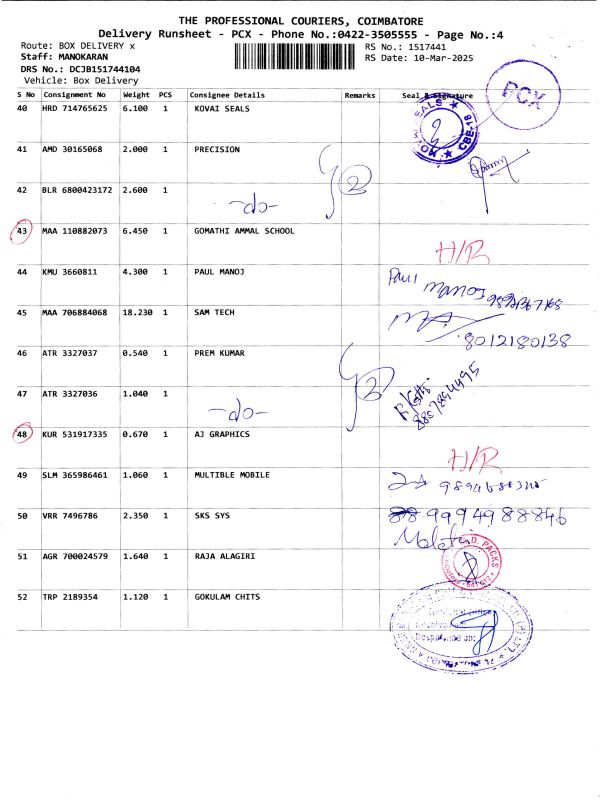 THE PROFESSIONAL COURIERS, COIMBATORE
Delivery Runsheet - PCX - Phone No.:0422-3505555 - Page No.:4
Route: BOX DELIVERY x
RS No.: 1517441
Staff: MANOKARAN
RS Date: 10-Mar-2025
DRS No.: DCJB151744104
Vehicle: Box Delivery
S No Consignment No Weight PCS Consignee Details Remarks Seal & Signature
PCX
40 HRD 714765625 6.100 1 KOVAI SEALS
41 AMD 30165068 2.000 1 PRECISION
2
42 BLR 6800423172 2.600 1 -do-
43 MAA 110882073 6.450 1 GOMATHI AMMAL SCHOOL
H/R
44 KMU 3660811 4.300 1 PAUL MANOJ
Paul Manoj
45 MAA 706884068 18.230 1 SAM TECH
8012180138
46 ATR 3327037 0.540 1 PREM KUMAR
2
47 ATR 3327036 1.040 1 -do-
48 KUR 531917335 0.670 1 AJ GRAPHICS
H/R
49 SLM 365986461 1.060 1 MULTIBLE MOBILE
50 VRR 7496786 2.350 1 SKS SYS
9994988846
51 AGR 700024579 1.640 1 RAJA ALAGIRI
PACKS
52 TRP 2189354 1.120 1 GOKULAM CHITS